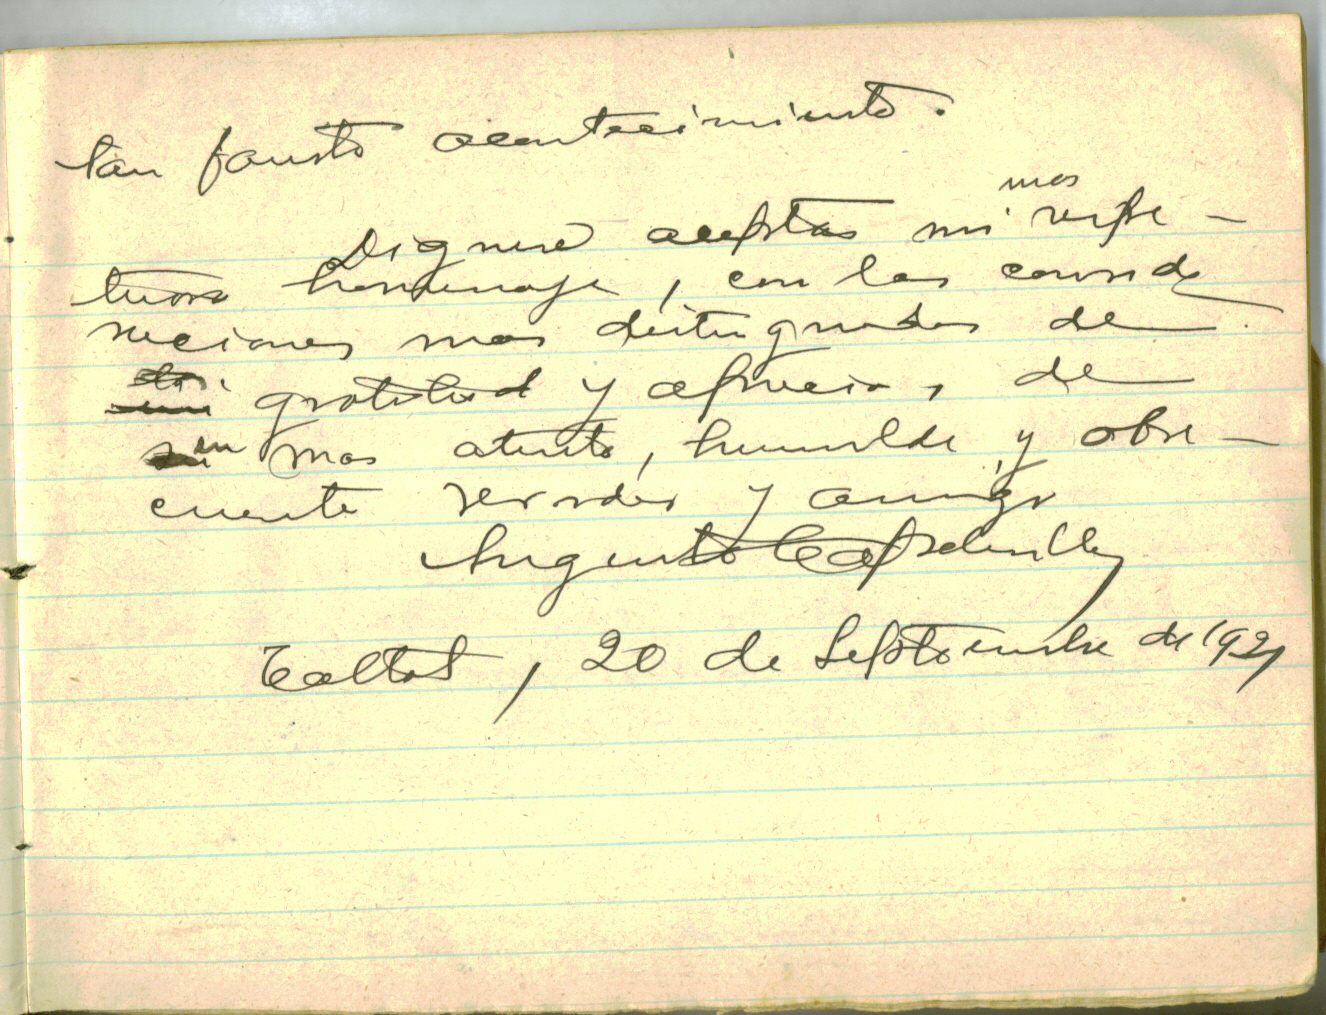 tan fausto acontecimiento.
mas
Dignese aceptar mi respe-
tuoso homenaje, con las conside
raciones mas distinguidas de
gratitud y aprecio, de
su mas atento, humilde y obse-
cuente servidor y amigo
Augusto Capdeville
Taltal, 20 de Septiembre de 1921